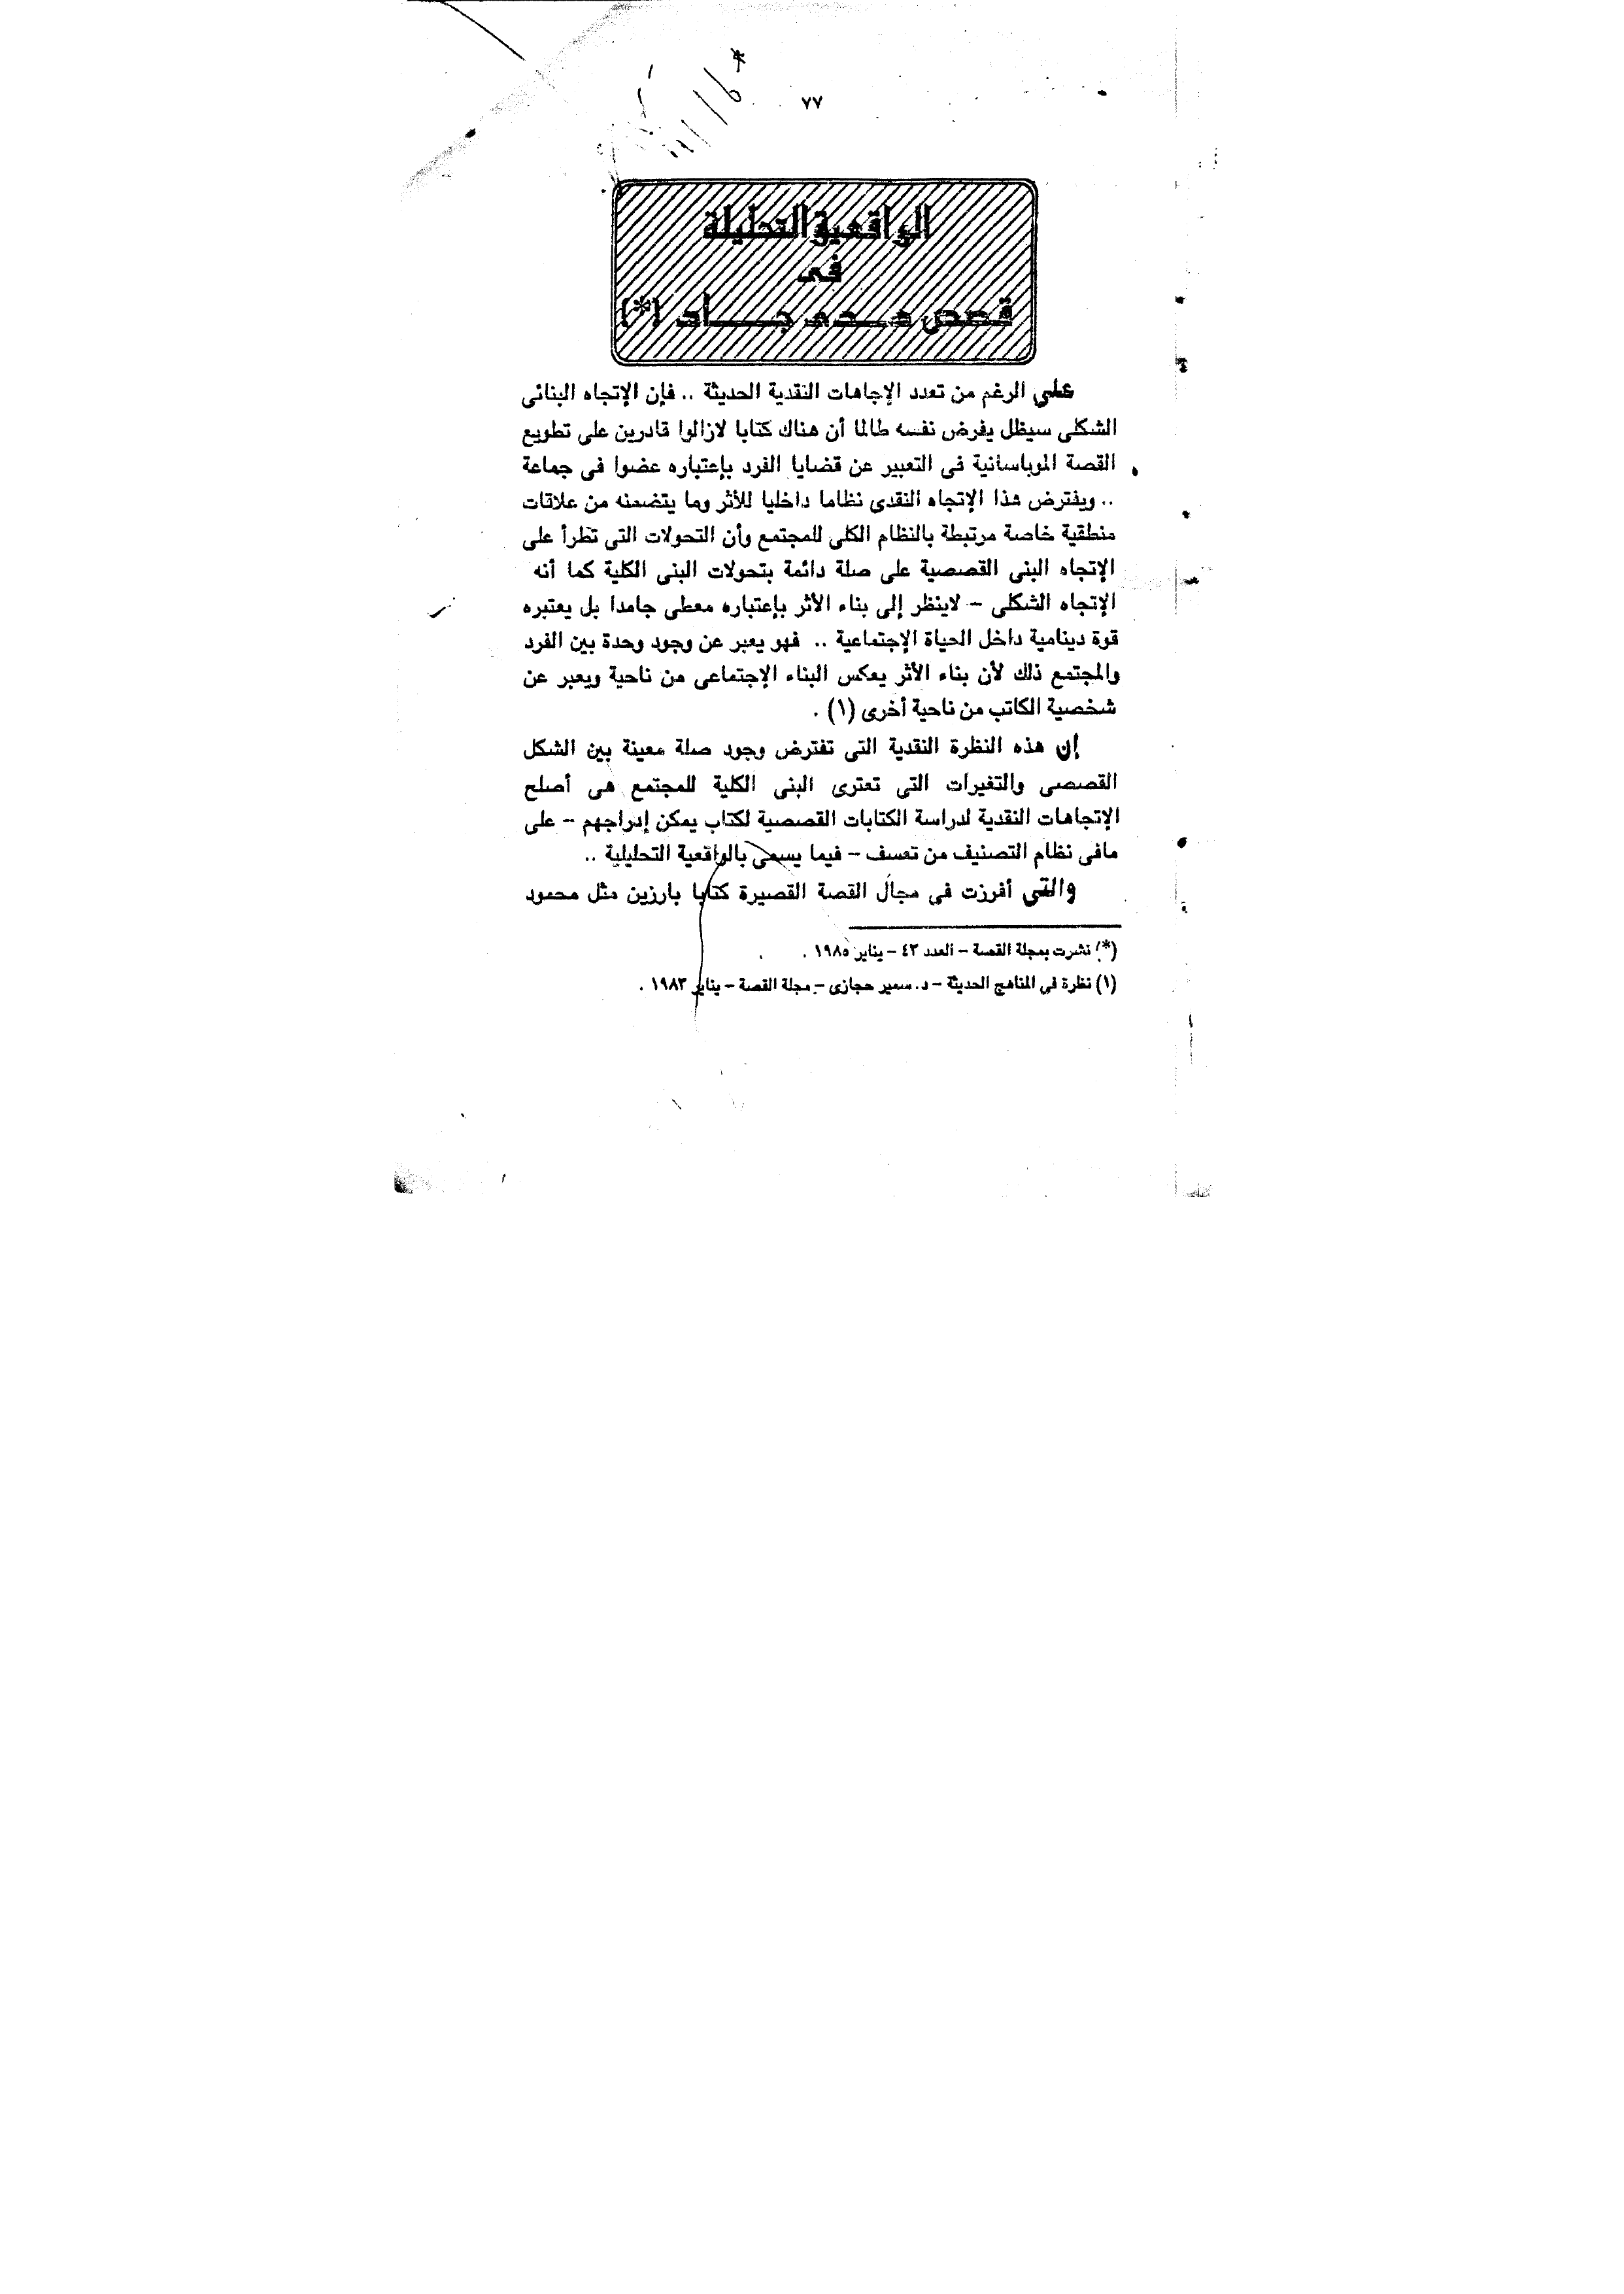 ٧٧
الواقعية التحليلة
فى
قصص هـدى جـاد (*)
على الرغم من تعدد الإجاهات النقدية الحديثة .. فإن الإتجاه البنائى
الشكلى سيظل يفرض نفسه طالما أن هناك كتابا لازالوا قادرين على تطويع
القصة الموباسانية فى التعبير عن قضايا الفرد بإعتباره عضوا فى جماعة
.. ويفترض هذا الإتجاه النقدى نظاما داخليا للأثر وما يتضمنه من علاقات
منطقية خاصة مرتبطة بالنظام الكلى للمجتمع وأن التحولات التى تطرأ على
الإتجاه البنى القصصية على صلة دائمة بتحولات البنى الكلية كما أنه
الإتجاه الشكلى - لاينظر إلى بناء الأثر بإعتباره معطى جامدا بل يعتبره
قوة دينامية داخل الحياة الإجتماعية .. فهو يعبر عن وجود وحدة بين الفرد
والمجتمع ذلك لأن بناء الأثر يعكس البناء الإجتماعى من ناحية ويعبر عن
شخصية الكاتب من ناحية أخرى (١) .
إن هذه النظرة النقدية التى تفترض وجود صلة معينة بين الشكل
القصصى والتغيرات التى تعترى البنى الكلية للمجتمع هى أصلح
الإتجاهات النقدية لدراسة الكتابات القصصية لكتاب يمكن إدراجهم - على
مافى نظام التصنيف من تعسف - فيما يسمى بالواقعية التحليلية ..
والتى أفرزت فى مجال القصة القصيرة كتابا بارزين مثل محمود
(*) نشرت بمجلة القصة - العدد ٤٣ - يناير ١٩٨٥ .
(١) نظرة فى المناهج الحديثة - د. سمير حجازى - مجلة القصة - يناير ١٩٨٣ .